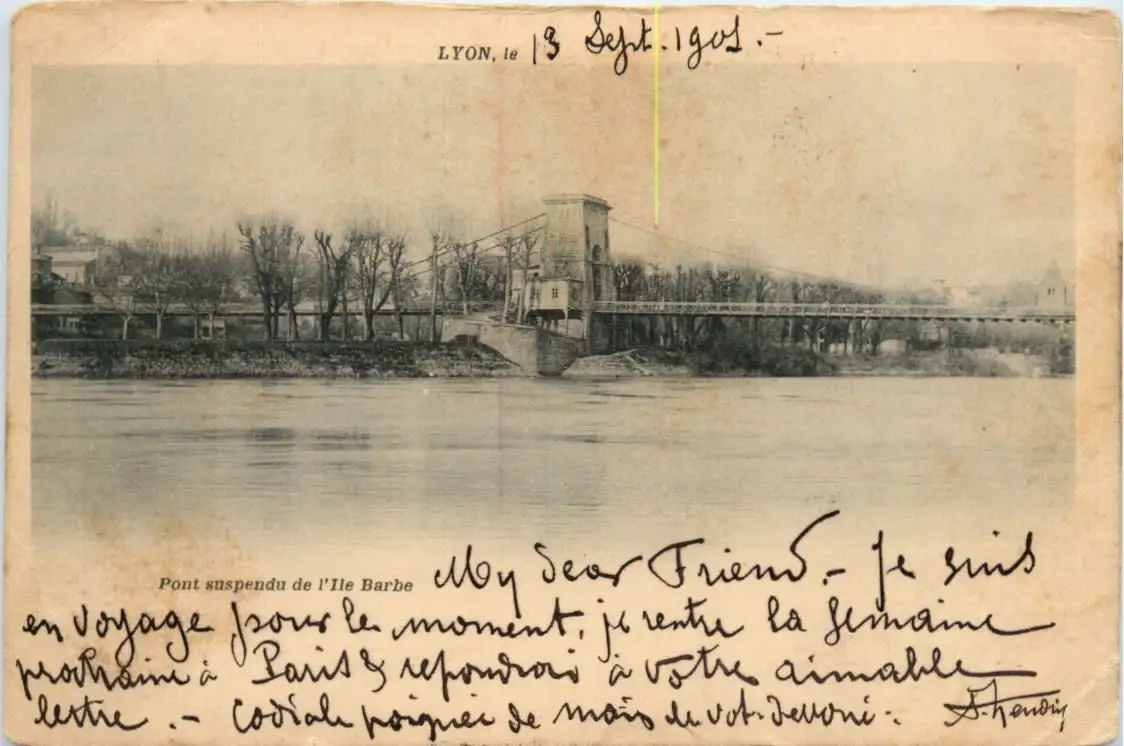 LYON, le 13 Sept. 1901.-
Pont suspendu de l'Ile Barbe
My dear Friend.- Je suis
en voyage pour le moment, je rentre la semaine
prochaine à Paris & repondrai à votre aimable
lettre.- Cordiale poignée de main de vot. devoué.